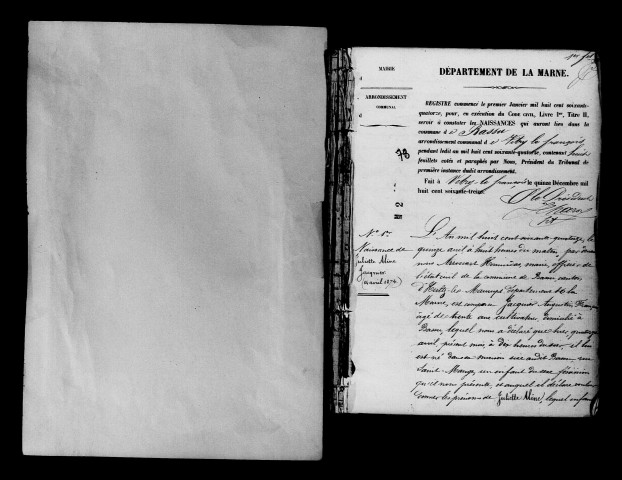 MAIRIE
d
ARRONDISSEMENT
COMMUNAL
d
DÉPARTEMENT DE LA MARNE.
REGISTRE commencé le premier Janvier mil huit cent soixante-
quatorze, pour, en exécution du Code civil, Livre Ier, Titre II,
servir à constater les NAISSANCES qui auront lieu dans la
commune d e Bassu
arrondissement communal d e Vitry le françois
pendant ledit an mil huit cent soixante-quatorze, contenant huit
feuillets cotés et paraphés par Nous, Président du Tribunal de
première instance dudit arrondissement.
Fait à Vitry le françois le quinze Décembre mil
huit cent soixante-treize.
Le Président
78
N 2
N° 1er
Naissance de
Juliette Aline
Jacquier
14 avril 1874
L'An mil huit cent soixante quatorze, le
quinze avril à huit heures du matin, par devant
nous maire, officier de
l'état civil de la commune de Bassu, canton
d'Heiltz-le-Maurupt département de la
Marne, est comparu Jacquier Augustin François
âgé de trente ans cultivateur, domicilié à
Bassu, lequel nous a déclaré que hier, quatorze
avril, présent mois, à dix heures du soir, il lui
est né dans sa maison sise audit Bassu, rue
Saint-Mange, un enfant du sexe féminin
qu'il nous présente, et auquel il déclare vouloir
donner les prénoms de Juliette Aline, lequel enfant